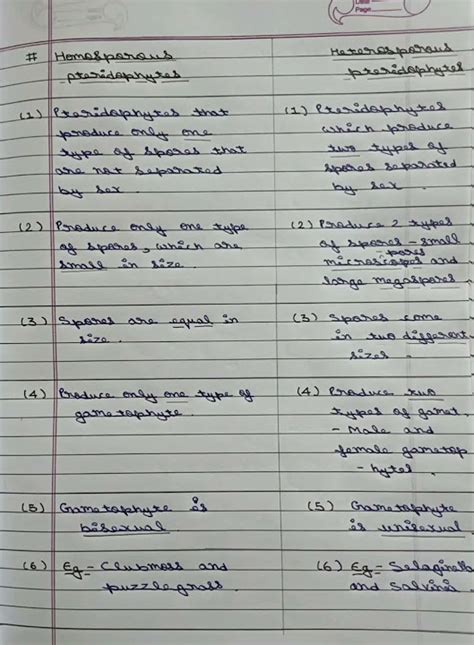 Date
Page
# Homosporous
pteridophytes
(1) Pteridophytes that
produce only one
type of spores that
are not separated
by sex.
(2) Produce only one type
of spores, which are
small in size.
(3) Spores are equal in
size.
(4) Produce only one type of
gametophyte.
(5) Gametophyte is
bisexual.
(6) Eg - Clubmoss and
puzzlegrass.
Heterosporous
pteridophytes
(1) Pteridophytes
which produce
two types of
spores separated
by sex.
(2) Produce 2 types
of spores - small
- pores
microscopos and
large megaspores
(3) Spores come
in two different
sizes.
(4) Produce two
types of gamet
- Male and
female gametop
- hytes.
(5) Gametophyte
is unisexual.
(6) Eg - Selaginella
and Salvinia.